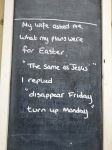 My wife asked me
what my plans were
for Easter
"The same as Jesus"
I replied
"disappear Friday
turn up Monday"